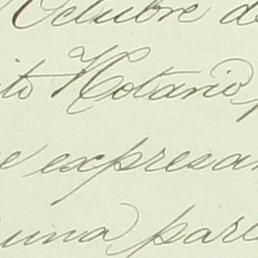 Octubre de
ito Notario,
e expresan
una parte